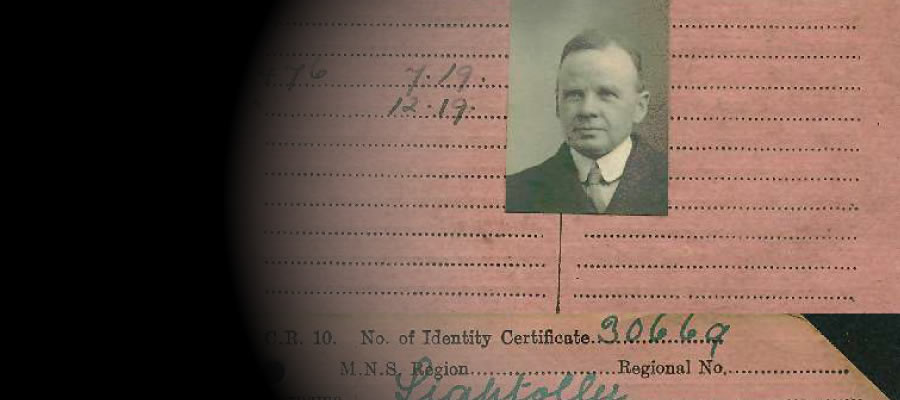 76 7·19·
12·19·
C.R. 10. No. of Identity Certificate 30669
M.N.S. Region Regional No.